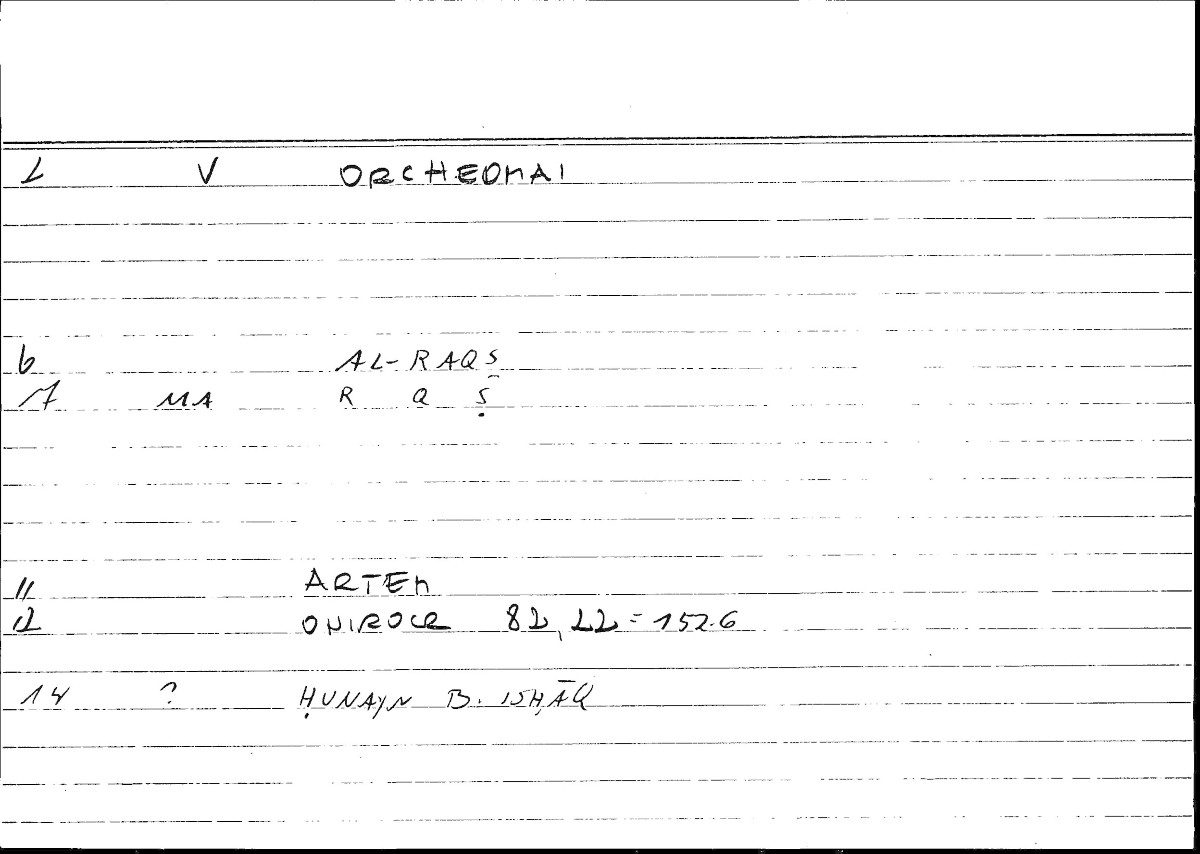 2 V ORCHEOMAI
6 AL-RAQṢ
7 MA R Q Ṣ
11 ARTEM
12 ONIROCR 82,22=152.6
14 ? ḤUNAYN B. ISḤĀQ